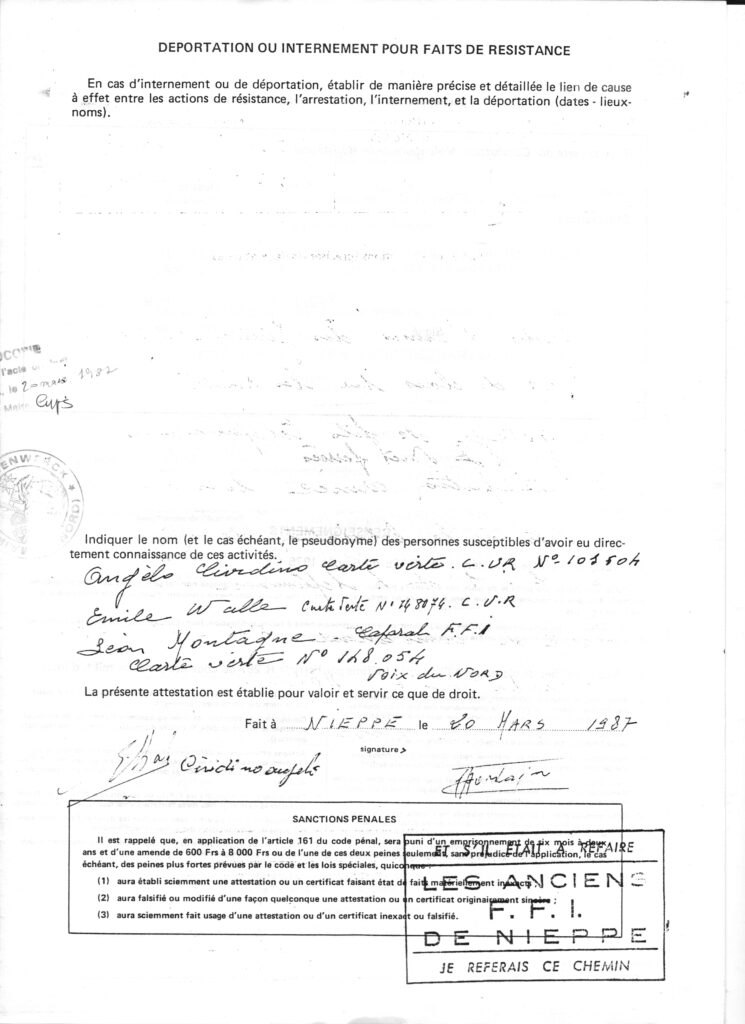 DEPORTATION OU INTERNEMENT POUR FAITS DE RESISTANCE
En cas d'internement ou de déportation, établir de manière précise et détaillée le lien de cause
à effet entre les actions de résistance, l'arrestation, l'internement, et la déportation (dates - lieux-
noms).
l'acte
le 20 mars 1987
Indiquer le nom (et le cas échéant, le pseudonyme) des personnes susceptibles d'avoir eu direc-
tement connaissance de ces activités.
Angélo Cividino carte verte. C.VR N° 101504
Emile Walle Carte Verte N° 148074. C.V.R
Léon Montagne - Caporal F.F.i
Carte verte N° 148.054
Voix du NORD
La présente attestation est établie pour valoir et servir ce que de droit.
Fait à NIEPPE le 20 MARS 1987
signature
Cividino angelo
SANCTIONS PENALES
Il est rappelé que, en application de l'article 161 du code pénal, sera puni d'un emprisonnement de six mois à deux
ans et d'une amende de 600 Frs à 8 000 Frs ou de l'une de ces deux peines seulement, sans préjudice de l'application, le cas
échéant, des peines plus fortes prévues par le code et les lois spéciales, quiconque
(1) aura établi sciemment une attestation ou un certificat faisant état de faits matériellement inexacts
(2) aura falsifié ou modifié d'une façon quelconque une attestation ou un certificat originairement sincère ;
(3) aura sciemment fait usage d'une attestation ou d'un certificat inexact ou falsifié.
ET S'IL ETAIT A REFAIRE
LES ANCIENS
F. F. I.
DE NIEPPE
JE REFERAIS CE CHEMIN